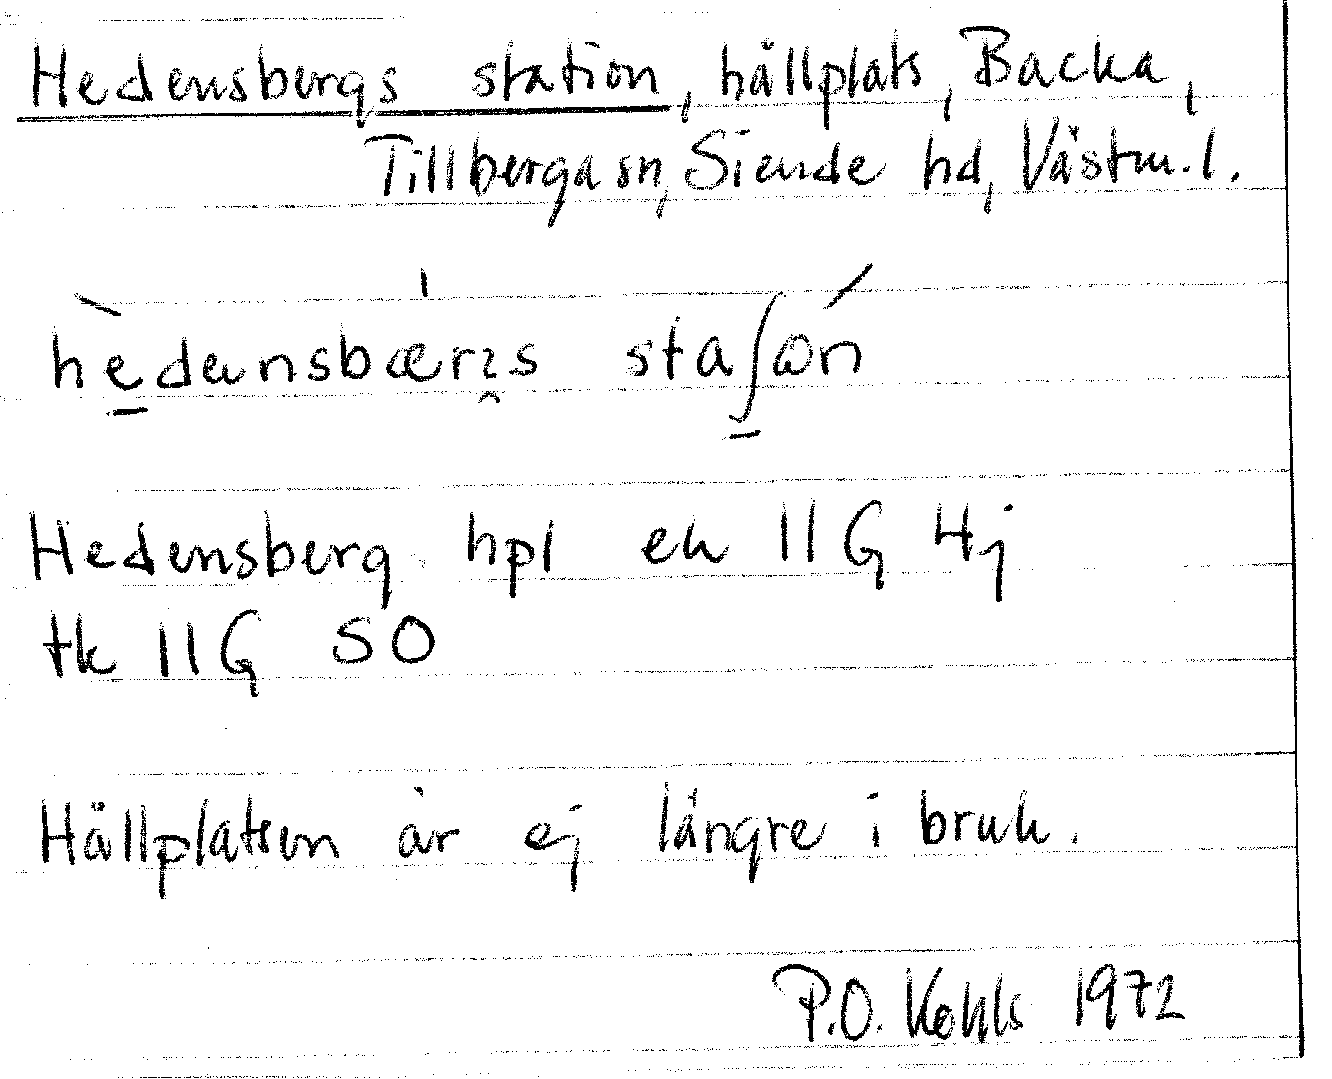 Hedensbergs station, hållplats, Backa,
Tillberga sn, Siende hd, Västm. l.
hedensbærıs staʃɷn
Hedensberg hpl ek 11G 4j
tk 11G SO
Hållplatsen är ej längre i bruk.
P.O. Kohls 1972